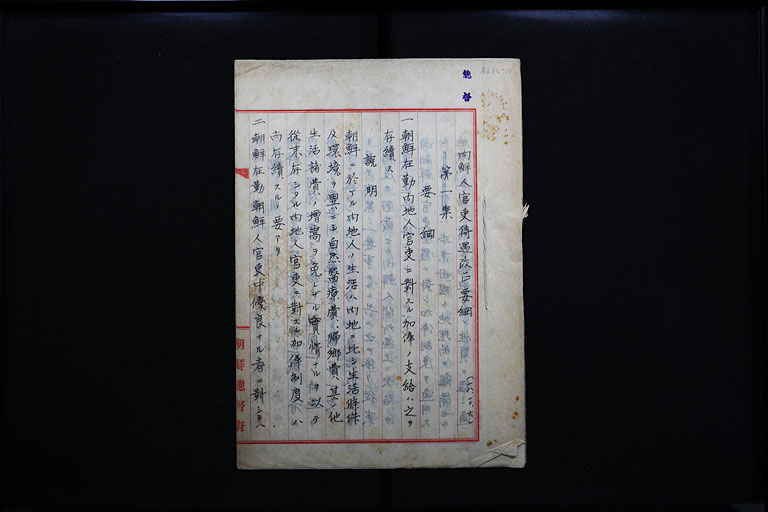 内鮮人官吏待遇改正要綱
第一案
要綱
一朝鮮在勤内地人官吏ニ對スル加俸ノ支給ハ之ヲ
存續ス
説明
朝鮮ニ於ケル内地人ノ生活ハ内地ニ比シ生活條件
及環境ヲ異ニシ自然醫療費、歸鄕費其ノ他
生活諸費ノ增嵩ヲ免レザル實情ナルヲ以テ
從来存シタル内地人官吏ニ對スル加俸制度ハ
尚存續スルノ要アリ
二朝鮮在勤朝鮮人官吏中優良ナル者ニ對シ
朝鮮總督府